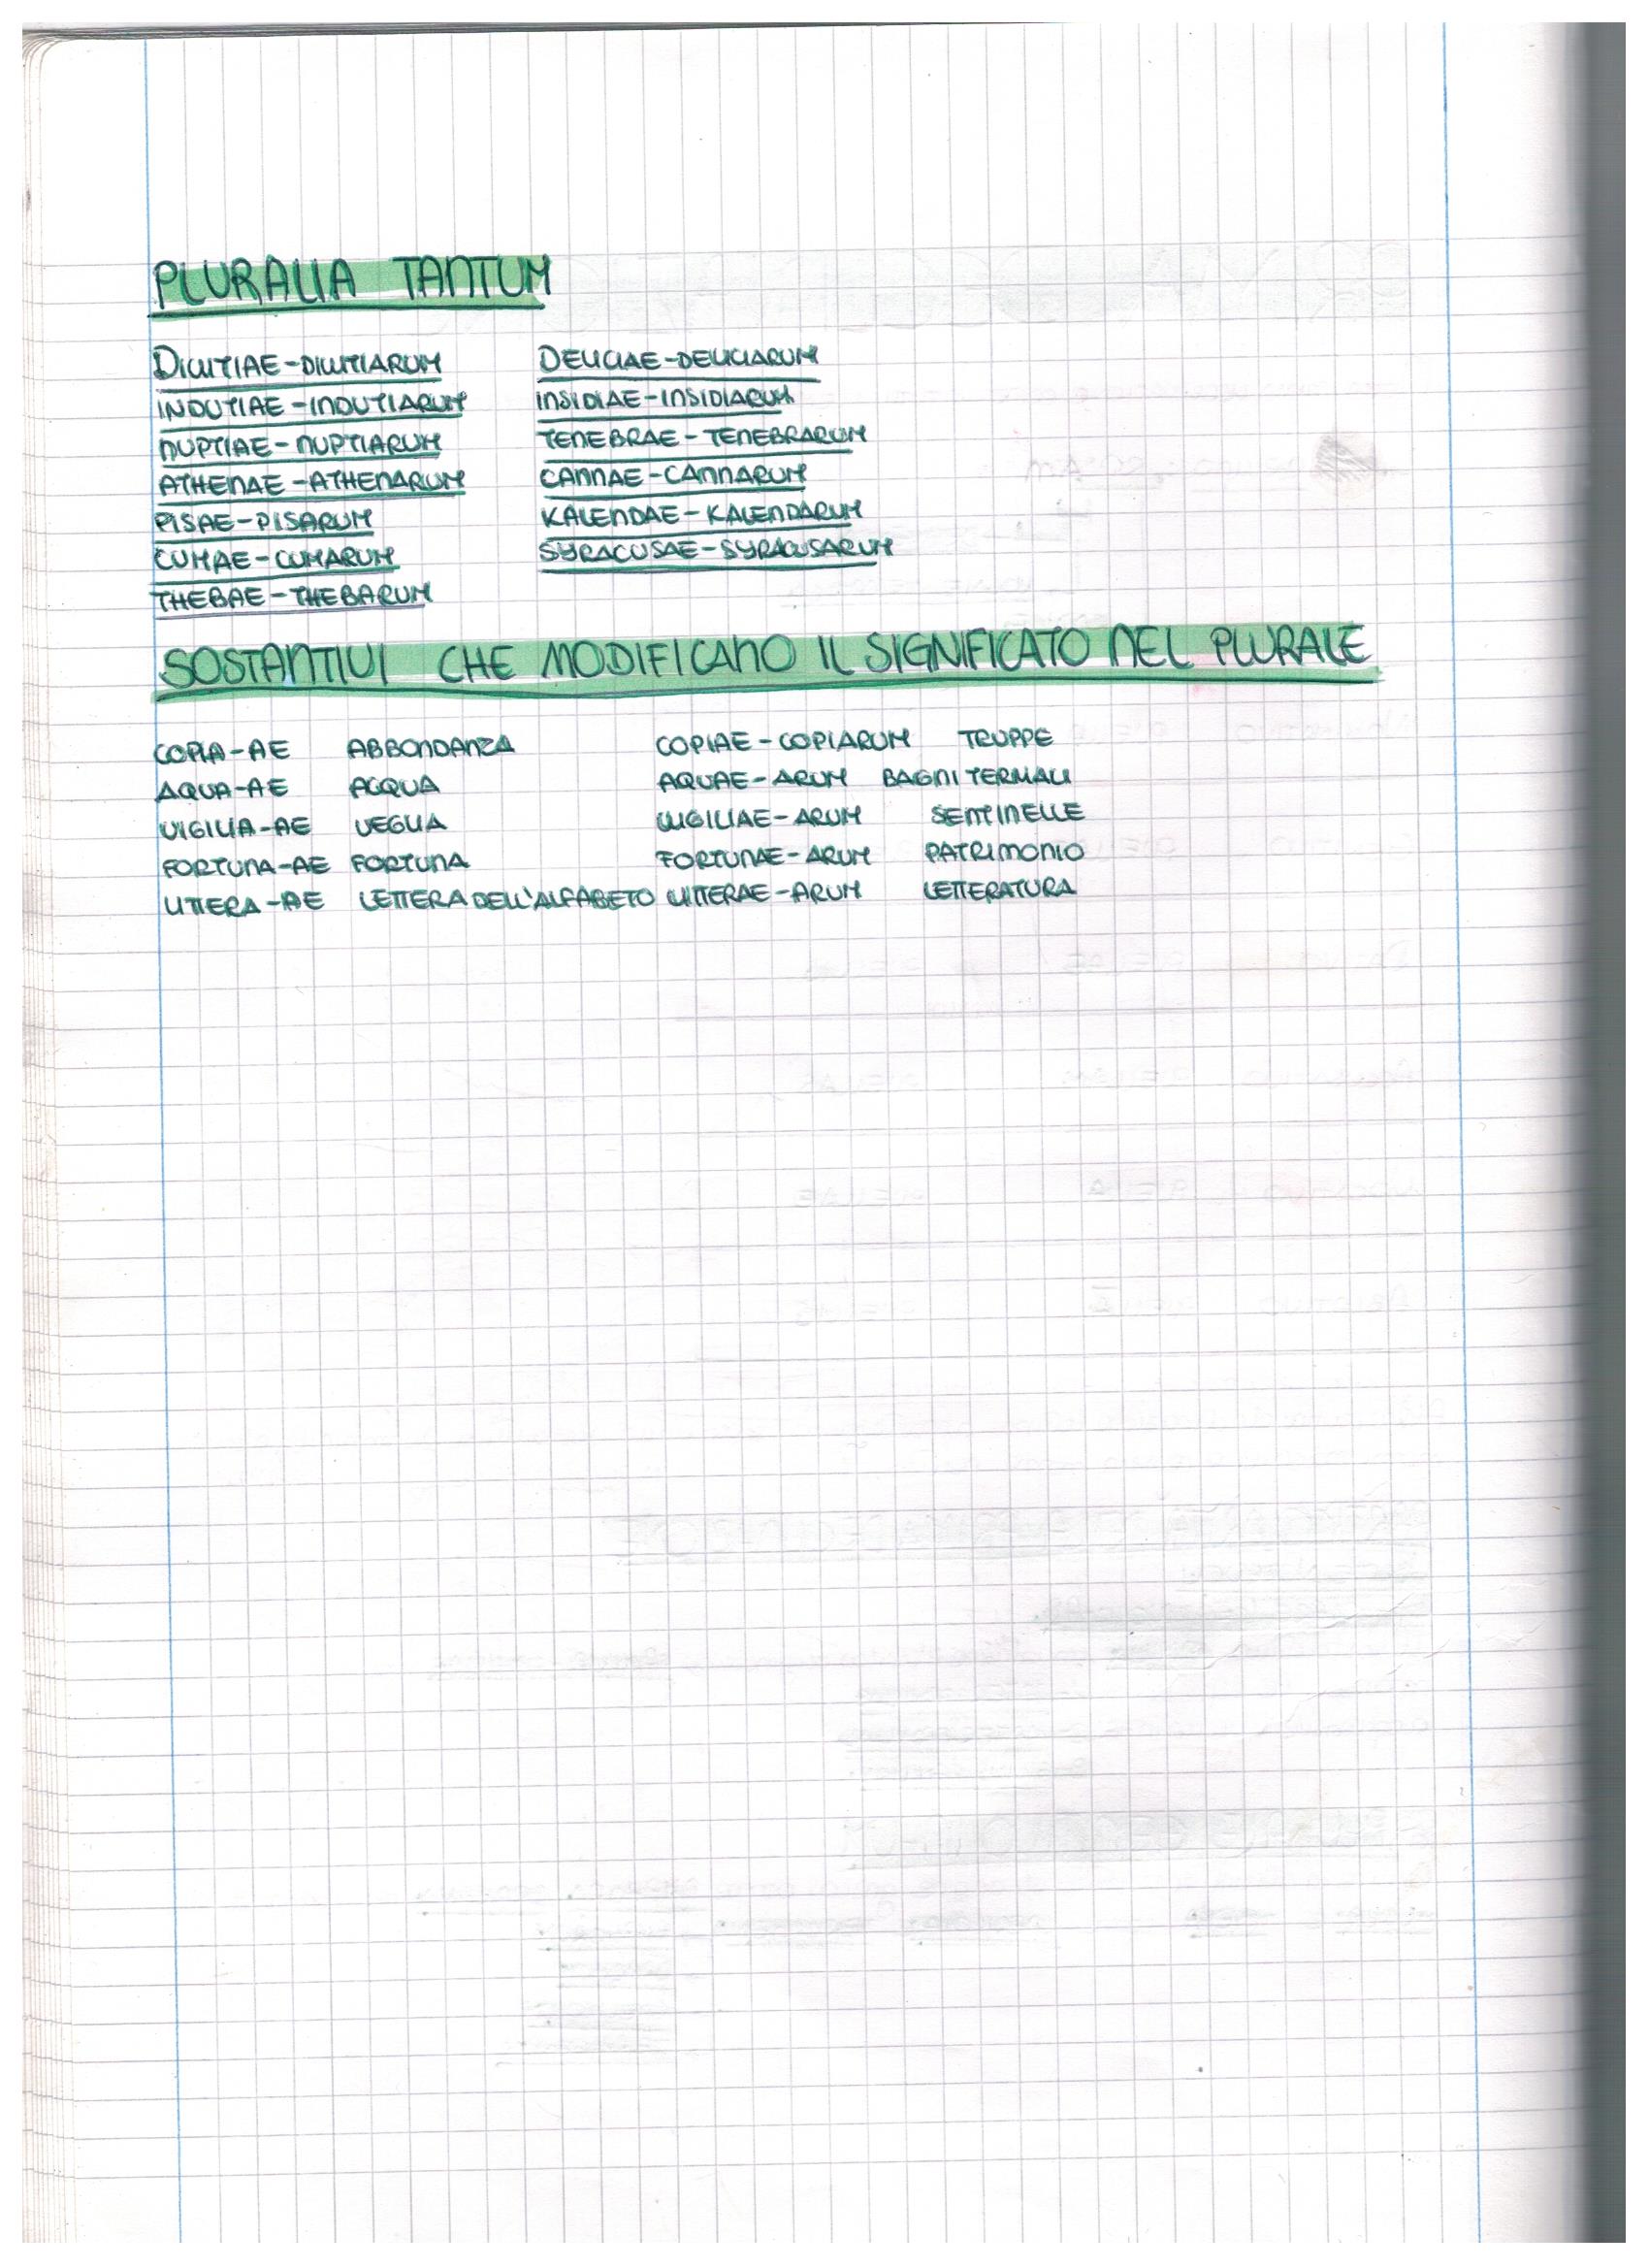 PLURALIA TANTUM
DIVITIAE-DIVITIARUM DELICIAE-DELICIARUM
INDUTIAE-INDUTIARUM INSIDIAE-INSIDIARUM
NUPTIAE-NUPTIARUM TENEBRAE-TENEBRARUM
ATHENAE-ATHENARUM CANNAE-CANNARUM
PISAE-PISARUM KALENDAE-KALENDARUM
CUMAE-CUMARUM SYRACUSAE-SYRACUSARUM
THEBAE-THEBARUM
SOSTANTIVI CHE MODIFICANO IL SIGNIFICATO NEL PLURALE
COPIA-AE ABBONDANZA COPIAE-COPIARUM TRUPPE
AQUA-AE ACQUA AQUAE-ARUM BAGNI TERMALI
VIGILIA-AE VEGLIA VIGILIAE-ARUM SENTINELLE
FORTUNA-AE FORTUNA FORTUNAE-ARUM PATRIMONIO
LITTERA-AE LETTERA DELL'ALFABETO LITTERAE-ARUM LETTERATURA